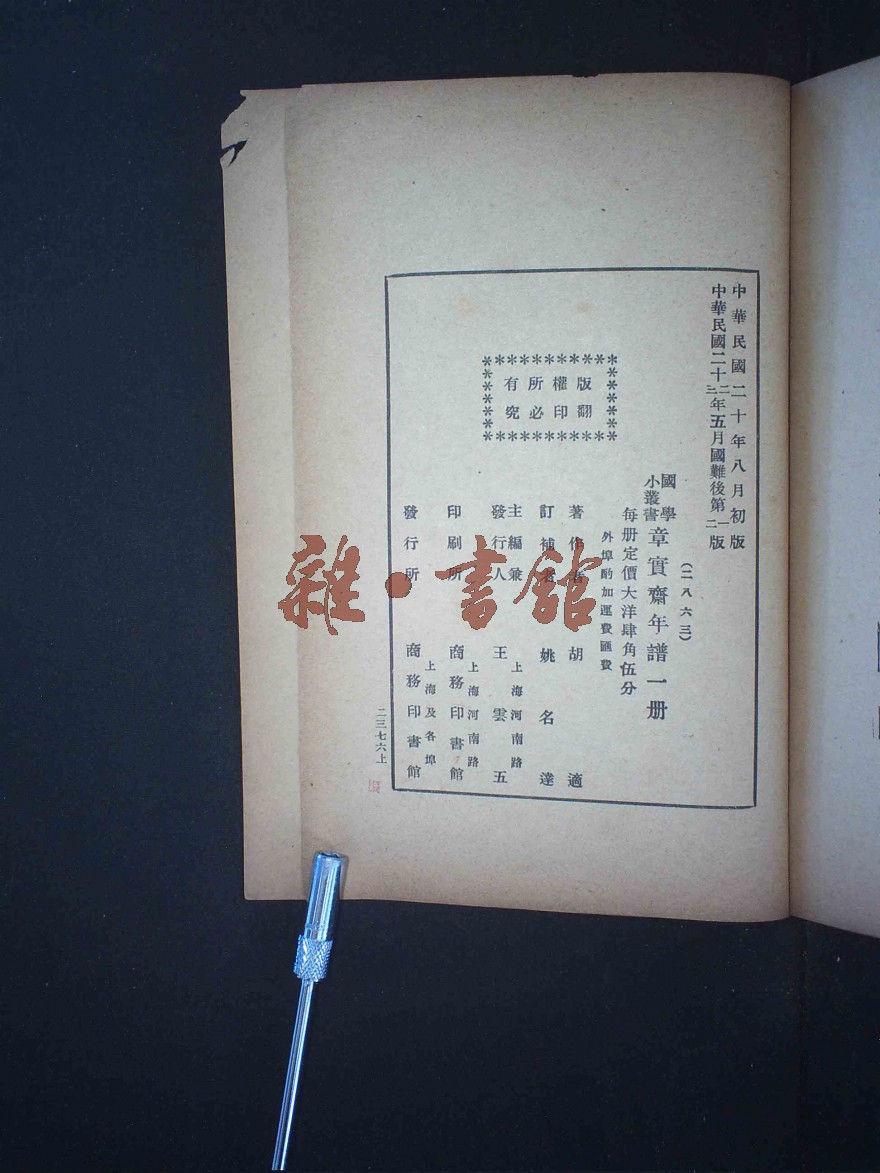 中華民國二十年八月初版
中華民國二十二年五月國難後第一版
三 二
(二八六三)
國學小叢書 章實齋年譜一册
每册定價大洋肆角伍分
外埠酌加運費匯費
版權所有
翻印必究
著作者 胡適
訂補者 姚名達
主編兼發行人 上海河南路 王雲五
印刷所 上海河南路 商務印書館
發行所 上海及各埠 商務印書館
二三七六上
雜·書館